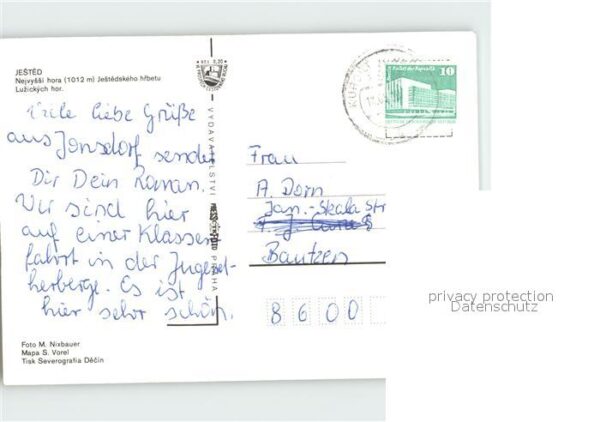 JEŠTĚD
Nejvyšší hora (1012 m) Ještědského hřbetu
Lužických hor.
Viele liebe Grüße
aus Jonsdorf sendet
Dir Dein Ronan.
Wir sind hier
auf einer Klassen
fahrt in der Jugend-
herberge. Es ist
hier sehr schön.
Foto M. Nixbauer
Mapa S. Vorel
Tisk Severografia Děčín
VYDAVATELSTVÍ
PRAHA
10
Frau
A. Dorn
Jan.-Skala Str
Bautzen
8600
privacy protection
Datenschutz